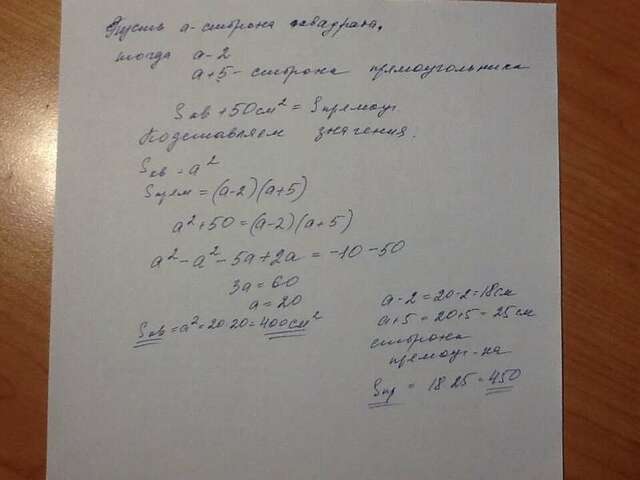 Пусть a - сторона квадрата,
тогда a-2
a+5 - сторона прямоугольника
Sкв + 50см² = Sпрямоуг
Подставляем значения.
Sкв = a²
Sпрям = (a-2)(a+5)
a²+50 = (a-2)(a+5)
a²-a²-5a+2a = -10-50
3a = 60
a = 20
Sкв = a² = 20·20 = 400см²
a-2 = 20-2 = 18см
a+5 = 20+5 = 25см
сторона
прямоуг-ка
Sпр = 18·25 = 450